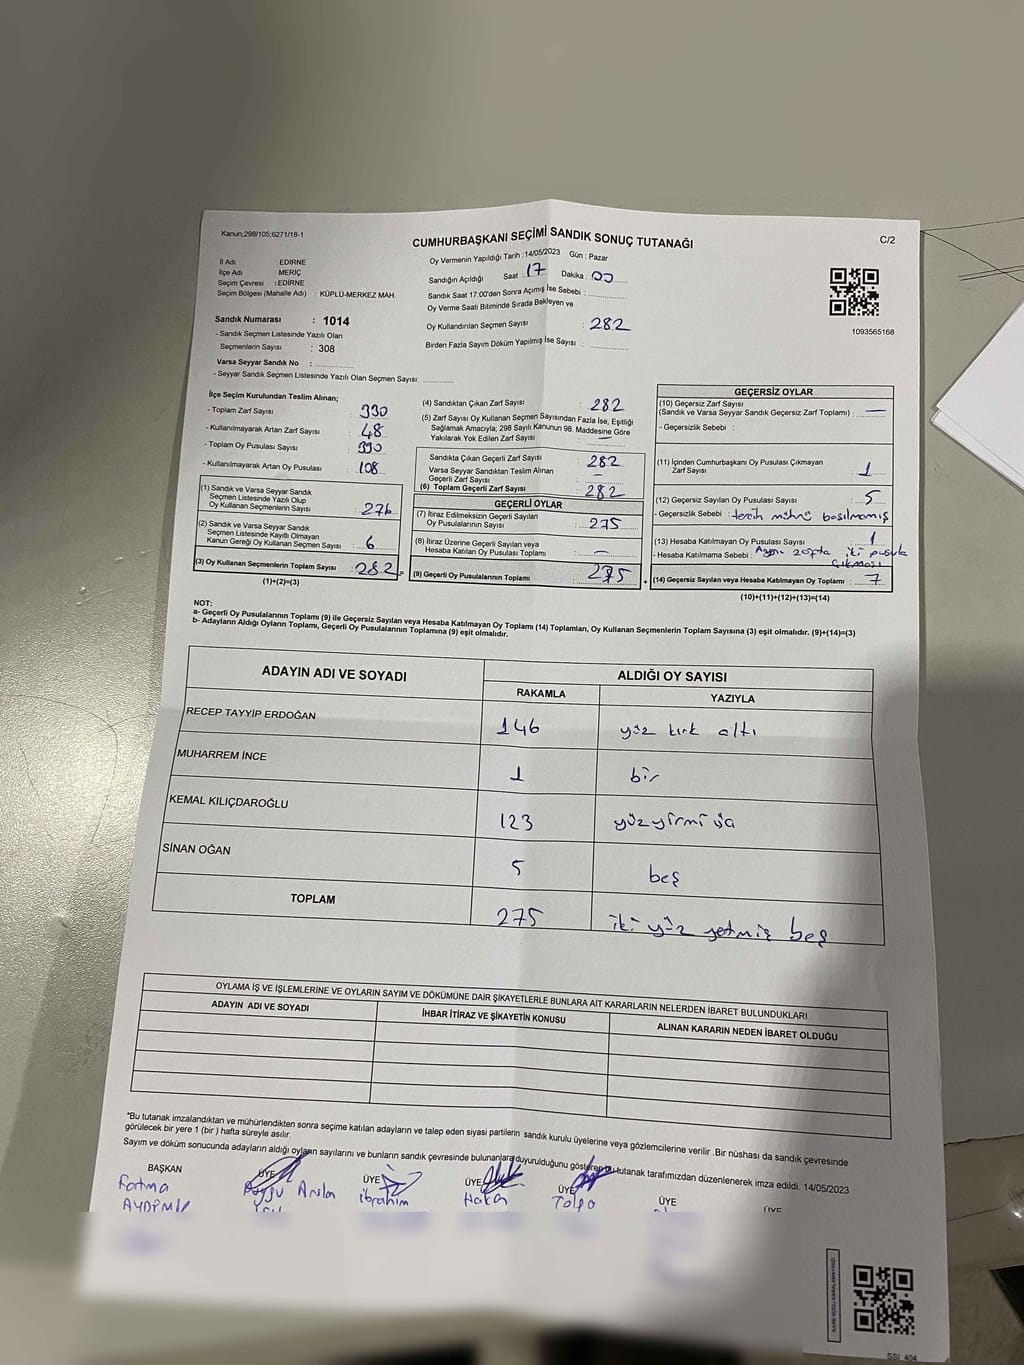 Kanun;298/105;6271/18-1
C/2
CUMHURBAŞKANI SEÇİMİ SANDIK SONUÇ TUTANAĞI
İl Adı : EDİRNE
İlçe Adı : MERİÇ
Seçim Çevresi : EDİRNE
Seçim Bölgesi (Mahalle Adı) : KÜPLÜ-MERKEZ MAH.
Sandık Numarası : 1014
- Sandık Seçmen Listesinde Yazılı Olan
Seçmenlerin Sayısı : 308
Varsa Seyyar Sandık No :
- Seyyar Sandık Seçmen Listesinde Yazılı Olan Seçmen Sayısı:
Oy Vermenin Yapıldığı Tarih : 14/05/2023 Gün : Pazar
Sandığın Açıldığı Saat : 17 Dakika : 00
Sandık Saat 17.00'den Sonra Açımış İse Sebebi :
Oy Verme Saati Bitiminde Sırada Bekleyen ve
Oy Kullandırılan Seçmen Sayısı : 282
Birden Fazla Sayım Döküm Yapılmış İse Sayısı :
1093565168
İlçe Seçim Kurulundan Teslim Alınan;
- Toplam Zarf Sayısı : 330
- Kullanılmayarak Artan Zarf Sayısı : 48
- Toplam Oy Pusulası Sayısı : 390
- Kullanılmayarak Artan Oy Pusulası : 108
(1) Sandık ve Varsa Seyyar Sandık
Seçmen Listesinde Yazılı Olup
Oy Kullanan Seçmenlerin Sayısı : 276
(2) Sandık ve Varsa Seyyar Sandık
Seçmen Listesinde Kayıtlı Olmayan
Kanun Gereği Oy Kullanan Seçmen Sayısı : 6
(3) Oy Kullanan Seçmenlerin Toplam Sayısı : 282
(1)+(2)=(3)
(4) Sandıktan Çıkan Zarf Sayısı : 282
(5) Zarf Sayısı Oy Kullanan Seçmen Sayısından Fazla İse, Eşitliği
Sağlamak Amacıyla; 298 Sayılı Kanunun 98. Maddesine Göre
Yakılarak Yok Edilen Zarf Sayısı : —
Sandıkta Çıkan Geçerli Zarf Sayısı : 282
Varsa Seyyar Sandıktan Teslim Alınan
Geçerli Zarf Sayısı : —
(6) Toplam Geçerli Zarf Sayısı : 282
GEÇERLİ OYLAR
(7) İtiraz Edilmeksizin Geçerli Sayılan
Oy Pusulalarının Sayısı : 275
(8) İtiraz Üzerine Geçerli Sayılan veya
Hesaba Katılan Oy Pusulası Toplamı : —
(9) Geçerli Oy Pusulalarının Toplamı : 275
GEÇERSİZ OYLAR
(10) Geçersiz Zarf Sayısı
(Sandık ve Varsa Seyyar Sandık Geçersiz Zarf Toplamı) : —
- Geçersizlik Sebebi :
(11) İçinden Cumhurbaşkanı Oy Pusulası Çıkmayan
Zarf Sayısı : 1
(12) Geçersiz Sayılan Oy Pusulası Sayısı : 5
- Geçersizlik Sebebi : tercih mührü basılmamış
(13) Hesaba Katılmayan Oy Pusulası Sayısı : 1
- Hesaba Katılmama Sebebi : Aynı zarfta iki pusula
çıkması
(14) Geçersiz Sayılan veya Hesaba Katılmayan Oy Toplamı : 7
(10)+(11)+(12)+(13)=(14)
NOT:
a- Geçerli Oy Pusulalarının Toplamı (9) ile Geçersiz Sayılan veya Hesaba Katılmayan Oy Toplamı (14) Toplamları, Oy Kullanan Seçmenlerin Toplam Sayısına (3) eşit olmalıdır. (9)+(14)=(3)
b- Adayların Aldığı Oyların Toplamı, Geçerli Oy Pusulalarının Toplamına (9) eşit olmalıdır.
ADAYIN ADI VE SOYADI
ALDIĞI OY SAYISI
RAKAMLA YAZIYLA
RECEP TAYYİP ERDOĞAN 146 yüz kırk altı
MUHARREM İNCE 1 bir
KEMAL KILIÇDAROĞLU 123 yüz yirmi üç
SİNAN OĞAN 5 beş
TOPLAM 275 iki yüz yetmiş beş
OYLAMA İŞ VE İŞLEMLERİNE VE OYLARIN SAYIM VE DÖKÜMÜNE DAİR ŞİKAYETLERLE BUNLARA AİT KARARLARIN NELERDEN İBARET BULUNDUKLARI
ADAYIN ADI VE SOYADI İHBAR İTİRAZ VE ŞİKAYETİN KONUSU ALINAN KARARIN NEDEN İBARET OLDUĞU
*Bu tutanak imzalandıktan ve mühürlendikten sonra seçime katılan adayların ve talep eden siyasi partilerin sandık kurulu üyelerine veya gözlemcilerine verilir .Bir nüshası da sandık çevresinde
görülecek bir yere 1 (bir ) hafta süreyle asılır.
Sayım ve döküm sonucunda adayların aldığı oyların sayılarını ve bunların sandık çevresinde bulunanlara duyurulduğunu gösteren bu tutanak tarafımızdan düzenlenerek imza edildi. 14/05/2023
BAŞKAN ÜYE ÜYE ÜYE ÜYE ÜYE ÜYE
Fatma Arslan İbrahim Hakan
AYDEMİR
SSİ 404